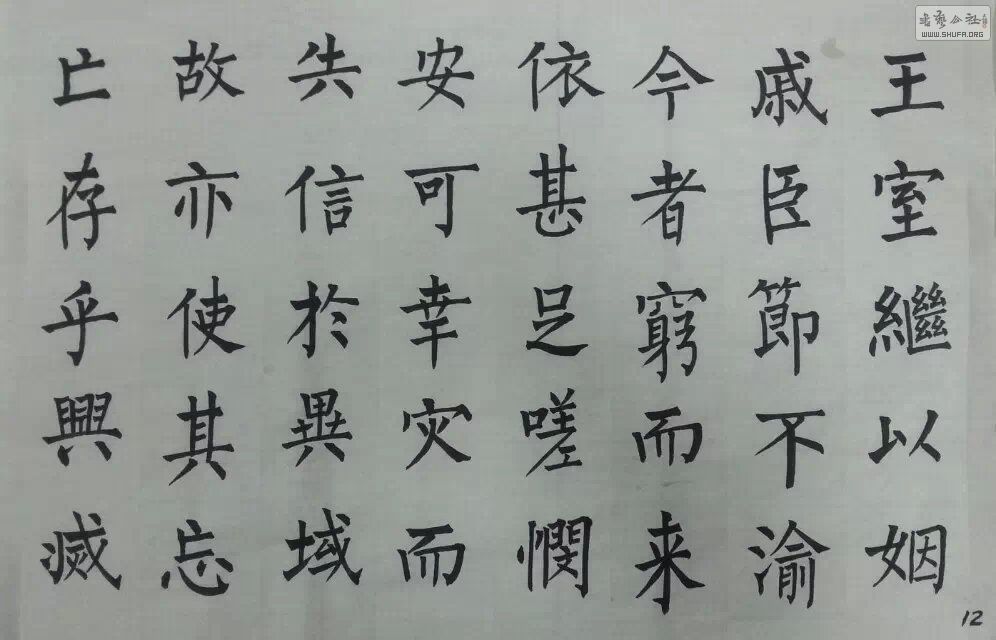 王室繼以姻
戚臣節不渝
今者窮而来
依甚足嗟憫
安可幸灾而
失信於異域
故亦使其忘
亡存乎興滅
12
书艺公社
WWW.SHUFA.ORG